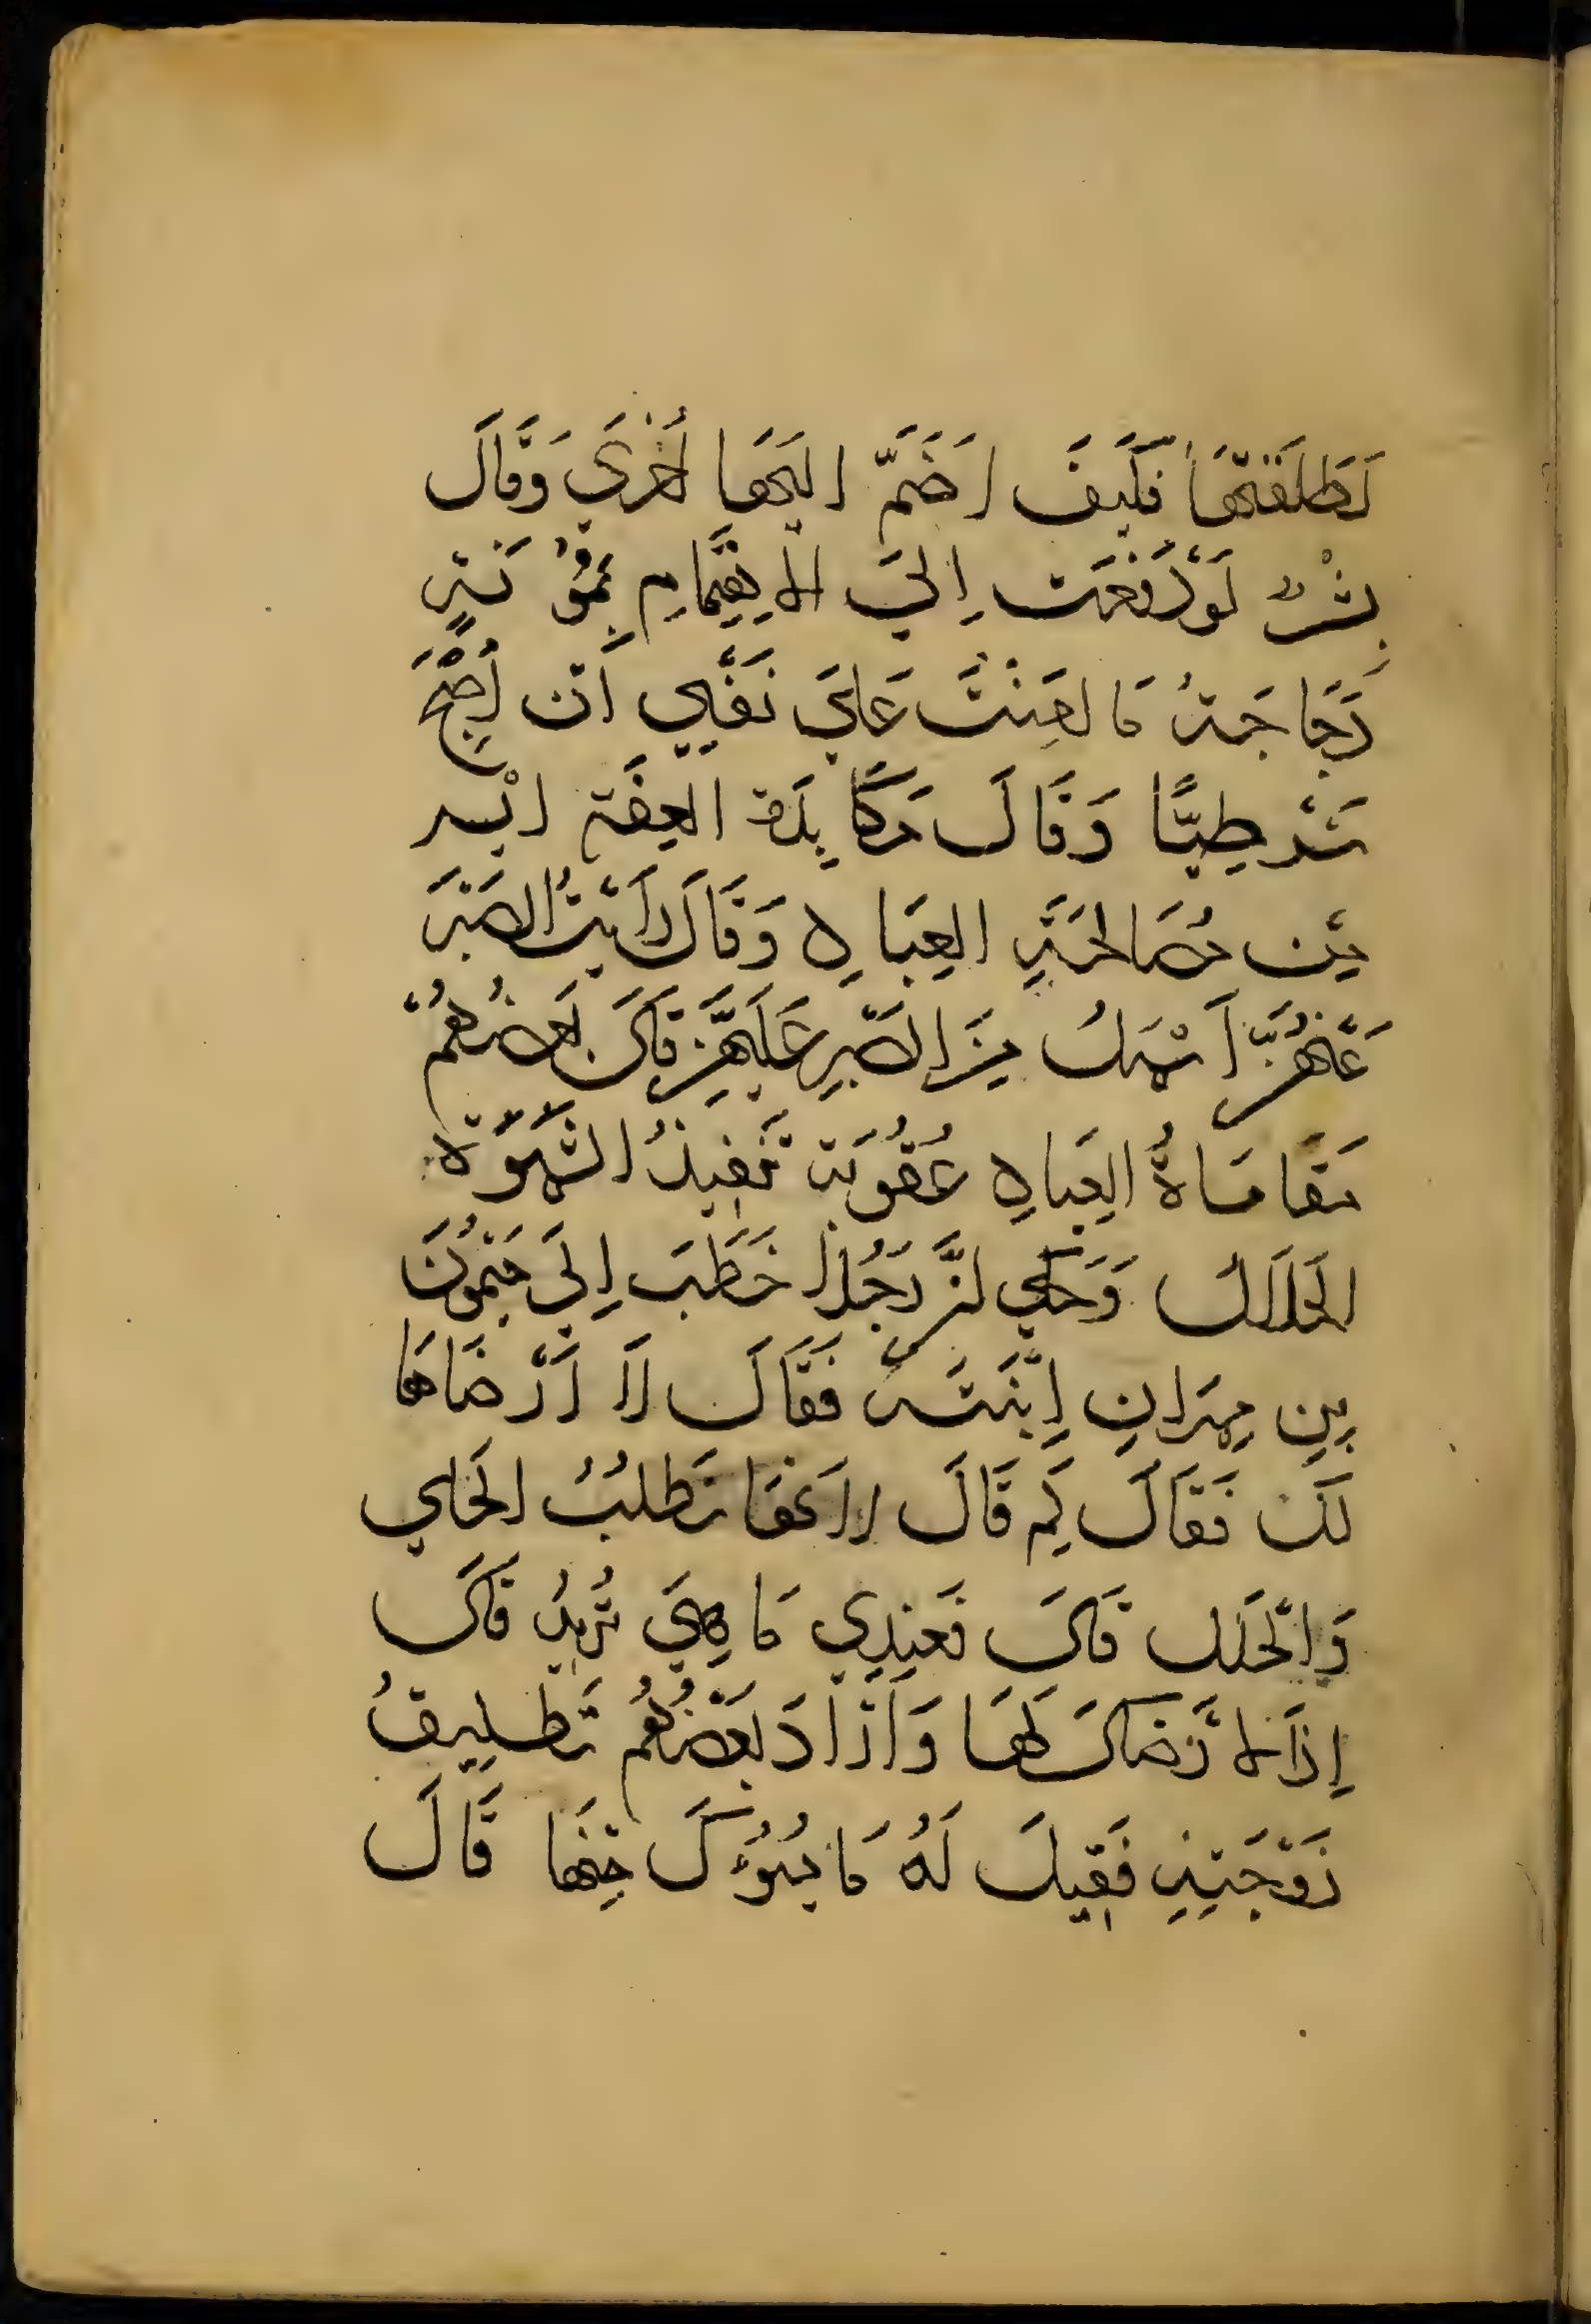 لَطَلَقتهَا فَكَيفَ اضَمّ اليَهَا اُخرَي وَقَالَ
بِشْرٌ لَوْ دَفَعتَ اِليَ الاِهتِمَامِ بِمَوُنَتِ
دَجَاجَة مَا امِنتُ عَليَ نَفسِي اَن اُصْبِحَ
شَرطِيًّا وَقَالَ مُكَابِدَة العِفَةِ ايْسر
مِن مُصَالحَةِ العِيَالِ وَقَالَ رَايتُ الصَبْرَ
عَنهُنَّ اَسْهَلُ مِنَ الصَبِر عَليَهِنَّ قَالَ بَعضُهُمْ
مقَاسَاةُ العِيالِ عُقُوبَة تَنفِيذُ الشَهوَة
الحَلَال وَحَكي انَّ رَجُلاً خَطَبَ اِليَ مَيمُونَ
بِن مِهرَانِ اِبْنَتَه فَقَالَ لَا اَرْضَاهَا
لَكَ فَقَالَ لِمَ قَالَ لاَنهَا تَطلبُ الحَلي
وَالحُلَل قَالَ فَعِندِي مَا هِيَ تُرِيدُ قَالَ
اِذاً لاَ نَرضَاكَ لَهَا وَاَرَادَ بَعضُهُم تَطلِيقُ
زَوْجَتِهِ فَقِيلَ لَهُ مَا يَسُوُكَ مِنهَا قَالَ